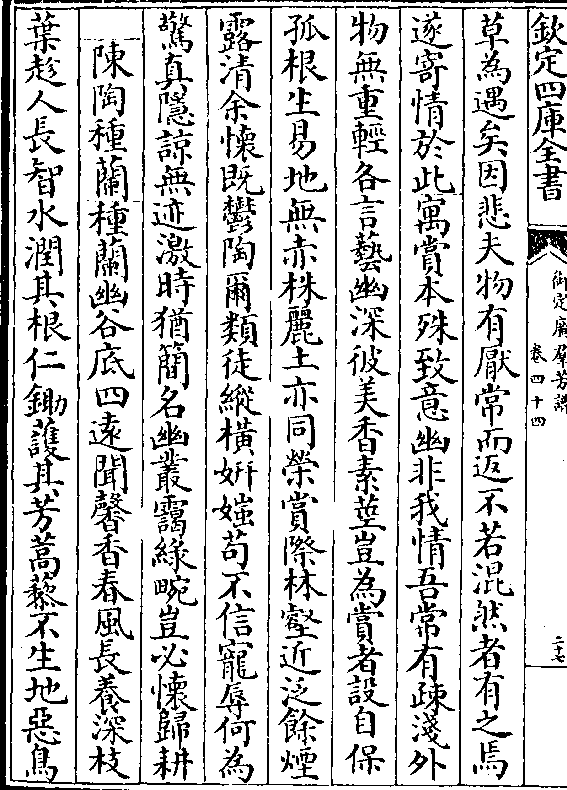 欽定四庫全書
御定廣羣芳譜
卷四十四
二十七
草為遇矣因悲夫物有厭常而返不若混然者有之焉
遂寄情於此寓賞本殊致意幽非我情吾常有疎淺外
物無重輕各言藝幽深彼美香素莖豈為賞者設自保
孤根生易地無赤株麗土亦同榮賞際林壑近泛餘煙
露清余懷既鬱陶爾類徒縱橫妍媸苟不信寵辱何為
驚真隱諒無迹激時猶簡名幽叢靄綠畹豈必懷歸耕
陳陶種蘭種蘭幽谷底四遠聞馨香春風長養深枝
葉趁人長智水潤其根仁鋤護其芳蒿藜不生地惡鳥